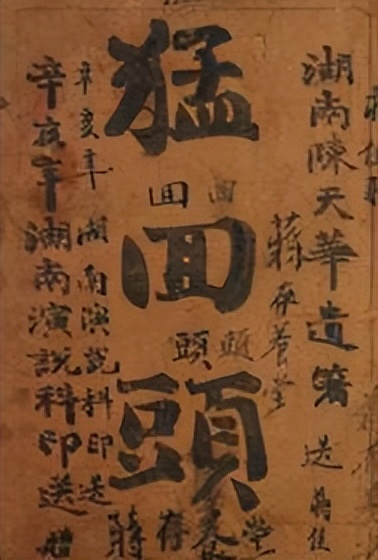 湖南陳天華遺著
送
蔣存養堂
猛回頭
回 回
頭 頭
辛亥年湖南演說科印送
辛亥年湖南演說科印送
蔣存養堂